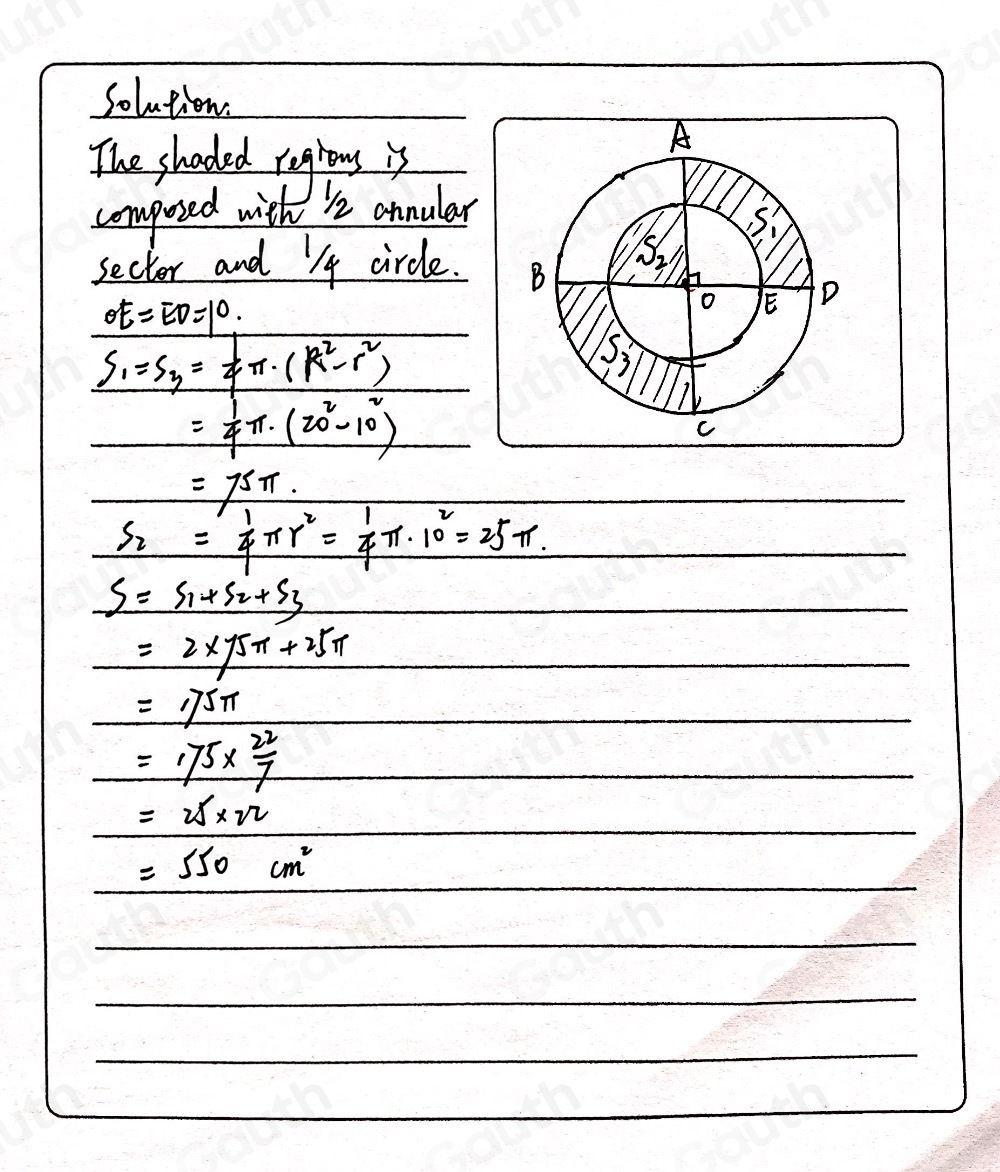 Solution.
The shaded regions is
composed with 1/2 annular
sector and 1/4 circle.
OE = ED = 10.
S₁ = S₃ = 1/4 π · (R² - r²)
= 1/4 π · (20² - 10²)
= 75π.
S₂ = 1/4 πr² = 1/4 π · 10² = 25π.
S = S₁ + S₂ + S₃
= 2 × 75π + 25π
= 175π
= 175 × 22/7
= 25 × 22
= 550 cm²
A
S₁
S₂
B
O
E
D
S₃
C
Gauth